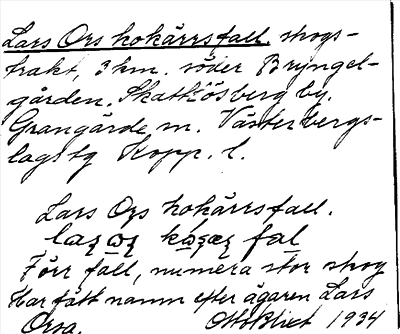 Lars Ors kokärrsfall, skogs-
trakt, 3 km. söder Bryngel-
gården. Skattlösberg by.
Grangärde, sn. Västerbergs-
lags tg Kopp. l.
Lars Ors kokärrsfall.
fal
Förr fall, numera stor skog
Har fått namn efter ägaren Lars
Orsa. Otto Blixt 1934